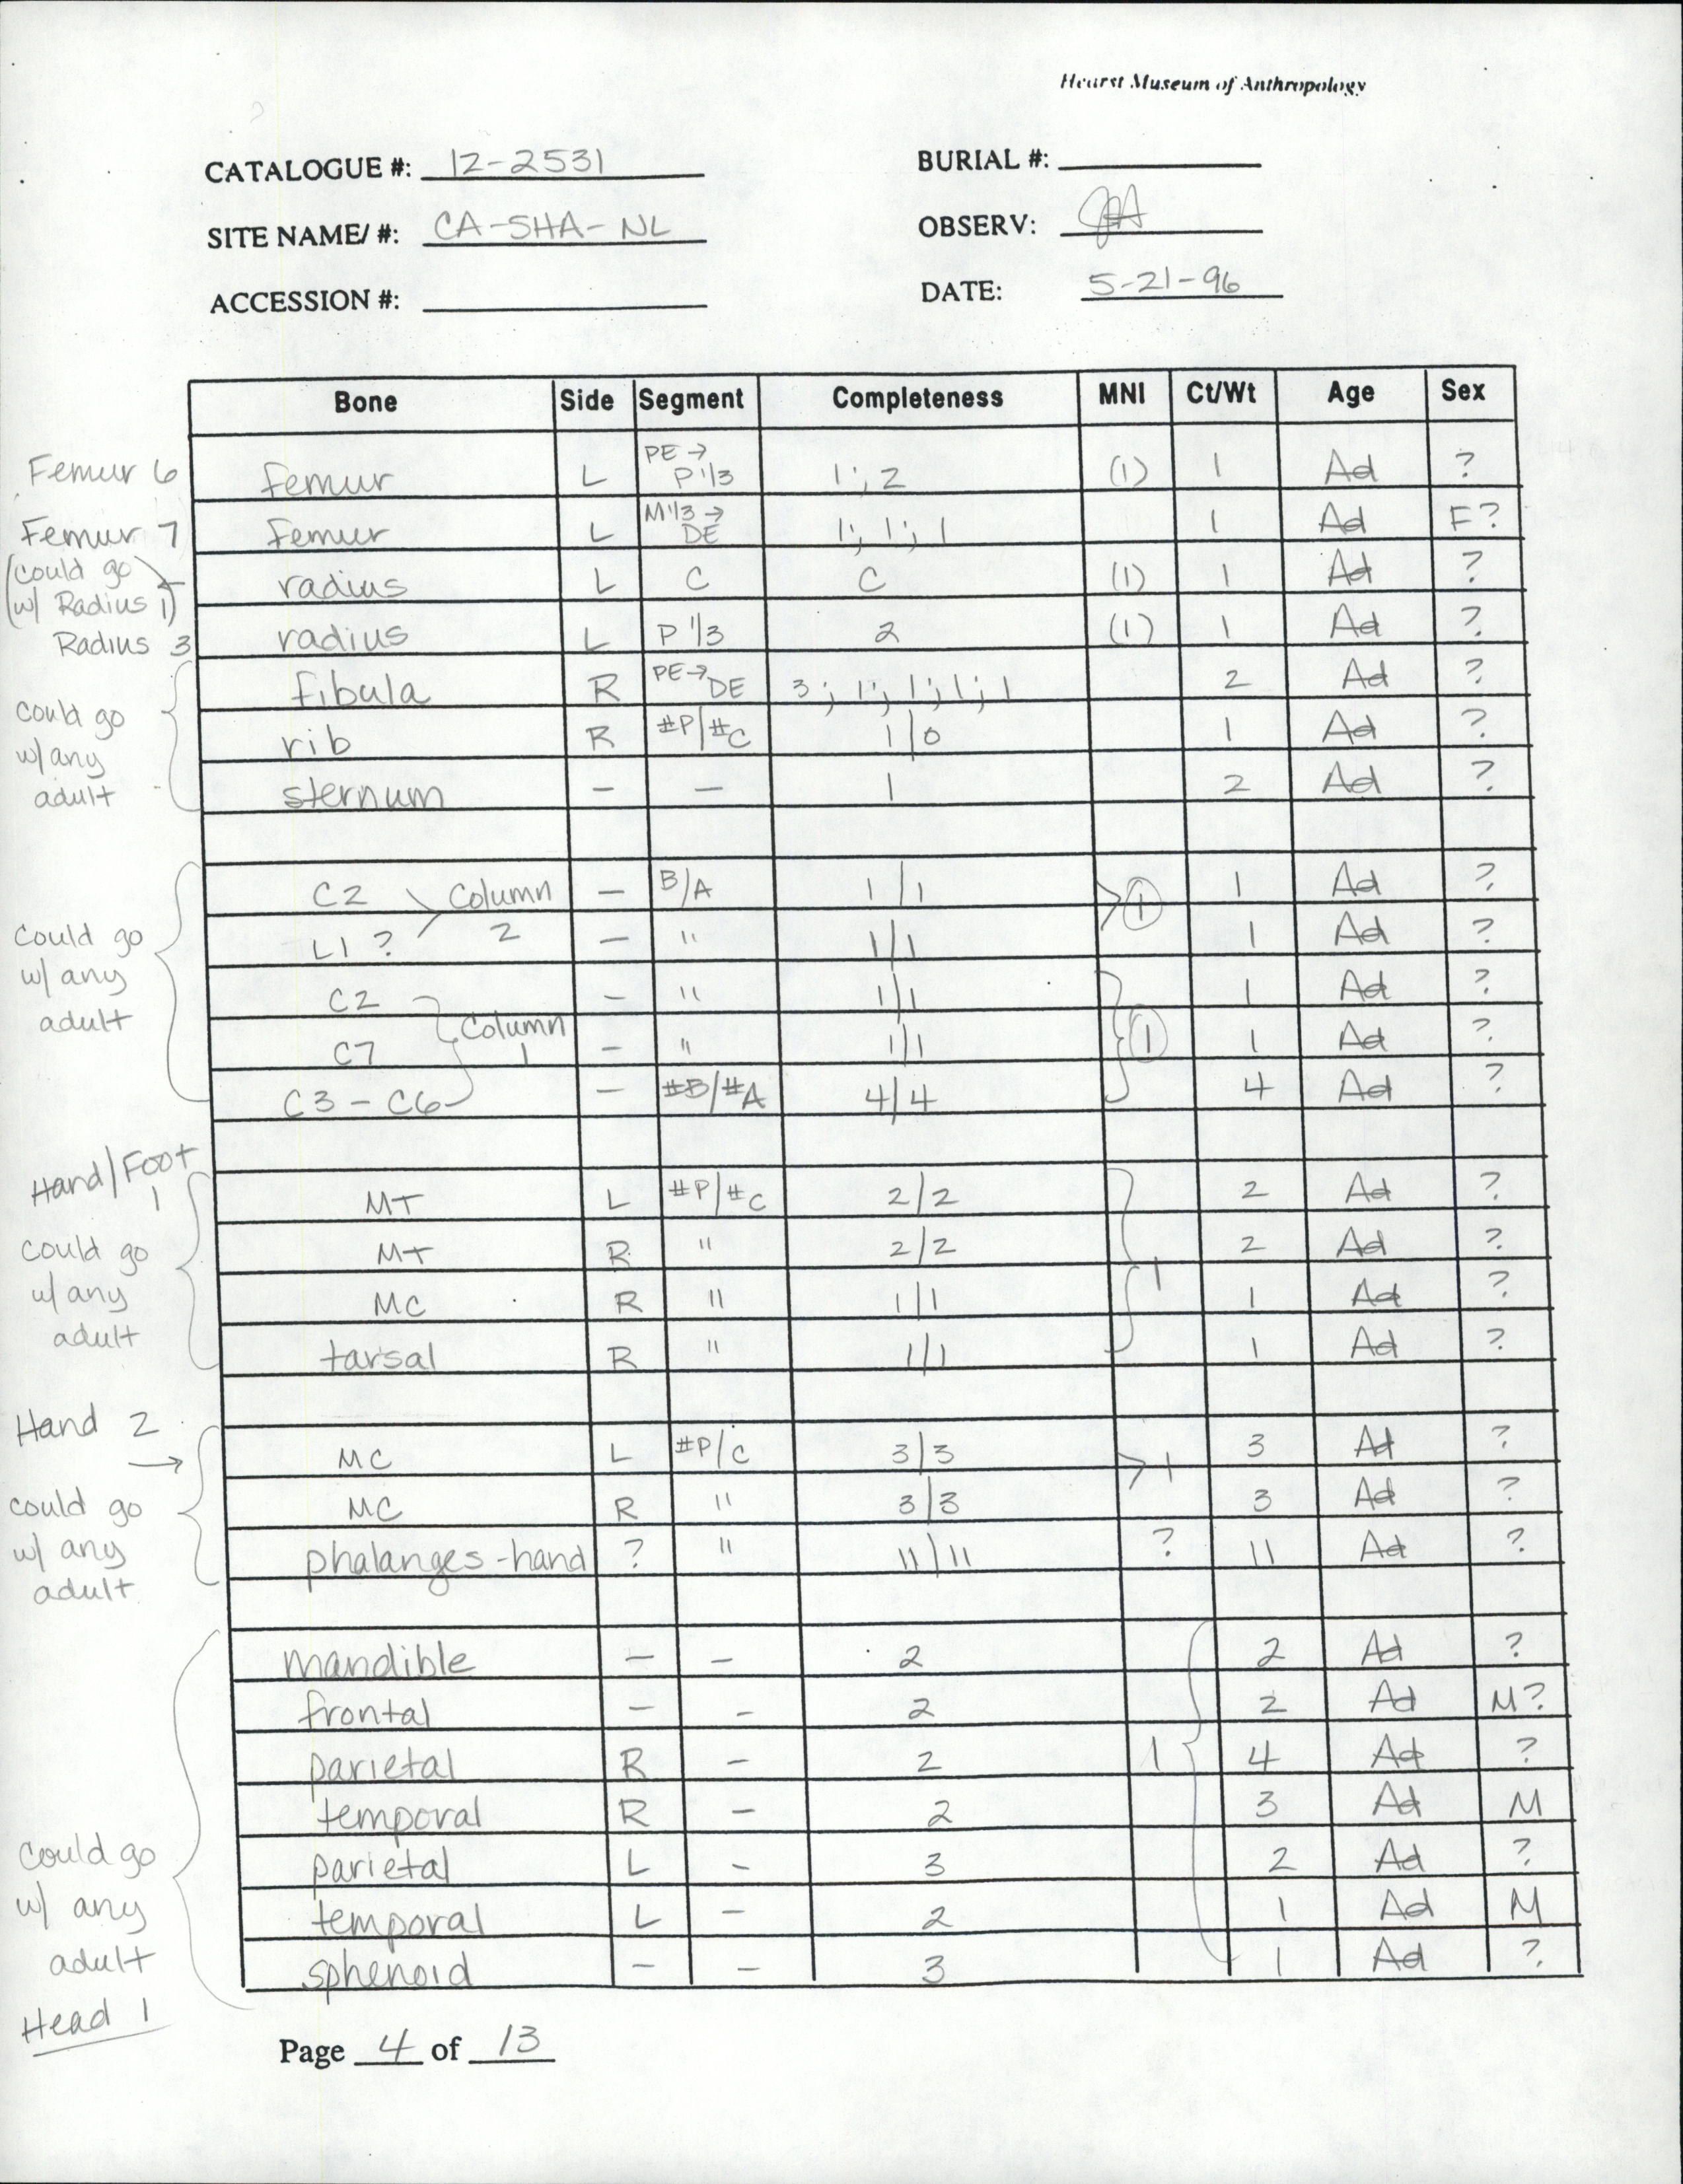 Hearst Museum of Anthropology
CATALOGUE #: 12-2531 BURIAL #:
SITE NAME/ #: CA-SHA-NL OBSERV:
ACCESSION #: DATE: 5-21-96
Bone Side Segment Completeness MNI Ct/Wt Age Sex
Femur 6 femur L PE → P 1/3 1; 2 (1) 1 Ad ?
Femur 7 femur L M 1/3 → DE 1; 1; 1 1 Ad F?
(could go w/ Radius 1) radius L C C (1) 1 Ad ?
Radius 3 radius L P 1/3 2 (1) 1 Ad ?
fibula R PE → DE 3; 1; 1; 1; 1 2 Ad ?
could go w/ any adult rib R #P/#C 1/0 1 Ad ?
sternum - - 1 2 Ad ?
C2 Column 2 - B/A 1/1 1 1 Ad ?
Could go w/ any adult L1 ? - " 1/1 1 Ad ?
C2 Column 1 - " 1/1 1 Ad ?
C7 - " 1/1 1 1 Ad ?
C3 - C6 - #B/#A 4/4 4 Ad ?
Hand/Foot 1
MT L #P/#C 2/2 2 Ad ?
could go w/ any adult MT R " 2/2 2 Ad ?
MC R " 1/1 1 1 Ad ?
tarsal R " 1/1 1 Ad ?
Hand 2 →
MC L #P/C 3/3 1 3 Ad ?
could go w/ any adult MC R " 3/3 3 Ad ?
phalanges-hand ? " 11/11 ? 11 Ad ?
mandible - - 2 2 Ad ?
frontal - - 2 2 Ad M?
parietal R - 2 1 4 Ad ?
temporal R - 2 3 Ad M
could go w/ any adult parietal L - 3 2 Ad ?
temporal L - 2 1 Ad M
sphenoid - - 3 1 Ad ?
Head 1
Page 4 of 13